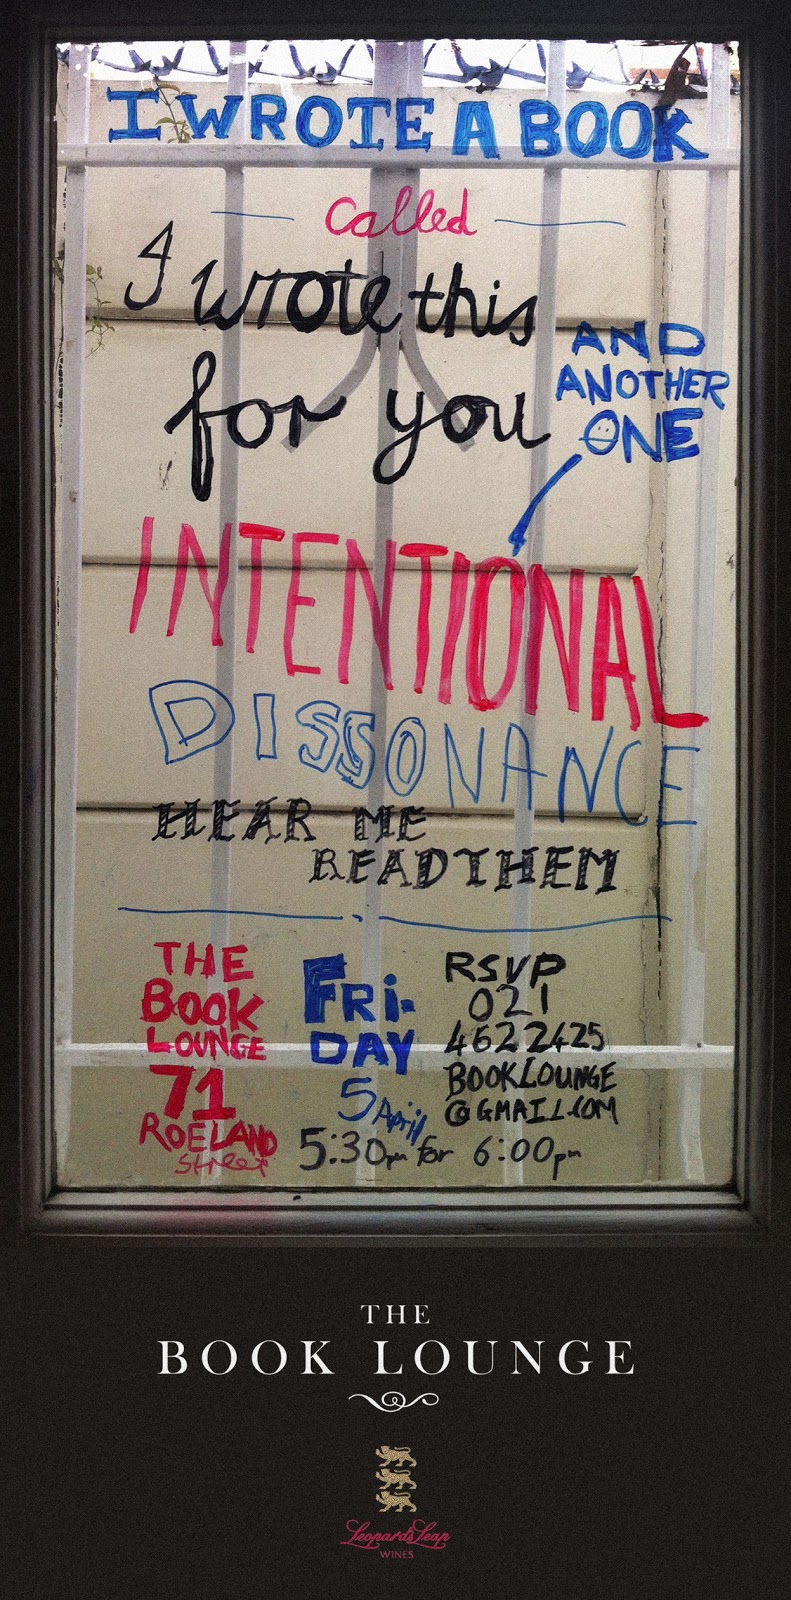 I WROTE A BOOK
called
I wrote this
for you
AND
ANOTHER
ONE
INTENTIONAL
DISSONANCE
HEAR ME
READ THEM
THE
BOOK
LOUNGE
71
ROELAND
Street
FRI-
DAY
5 April
5:30pm for 6:00pm
RSVP
021
4622425
BOOKLOUNGE
@GMAIL.COM
THE
BOOK LOUNGE
Leopard's Leap
WINES